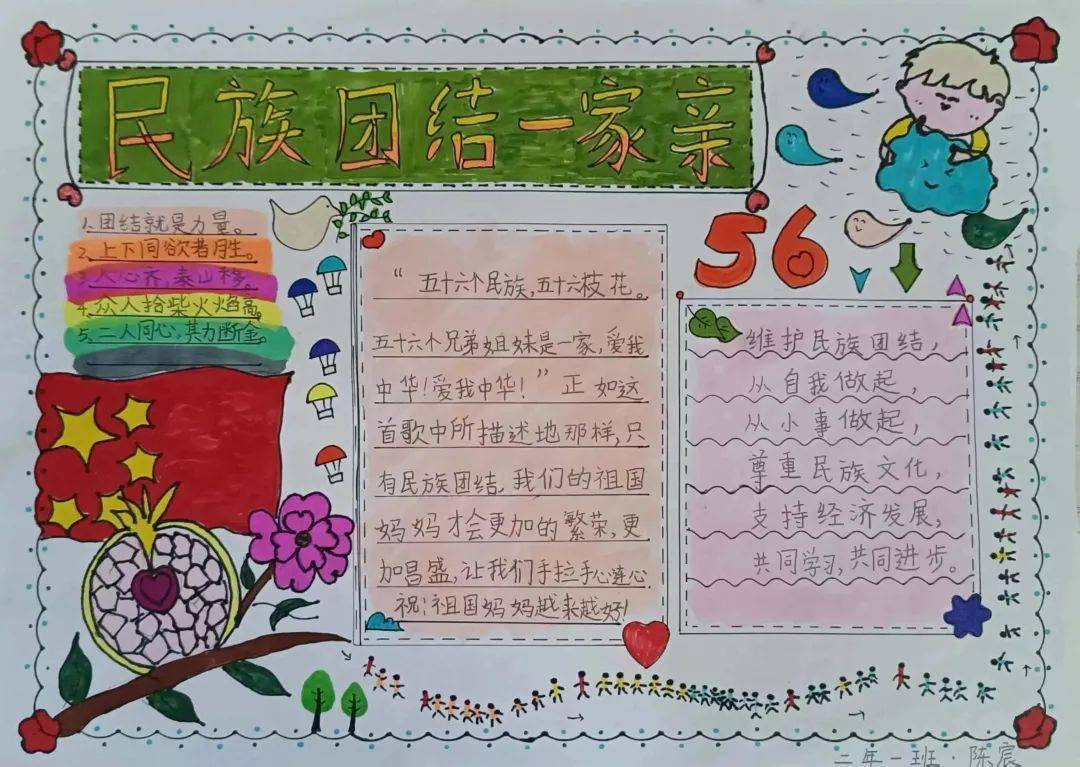 民族团结一家亲
1.团结就是力量。
2.上下同欲者胜。
3.人心齐,泰山移。
4.众人拾柴火焰高。
5.二人同心,其力断金。
56
“五十六个民族,五十六枝花。
五十六个兄弟姐妹是一家,爱我
中华!爱我中华!”正如这
首歌中所描述地那样,只
有民族团结,我们的祖国
妈妈才会更加的繁荣,更
加昌盛,让我们手拉手心连心.
祝:祖国妈妈越来越好!
维护民族团结,
从自我做起,
从小事做起,
尊重民族文化,
支持经济发展,
共同学习,共同进步。
二年一班·陈宸